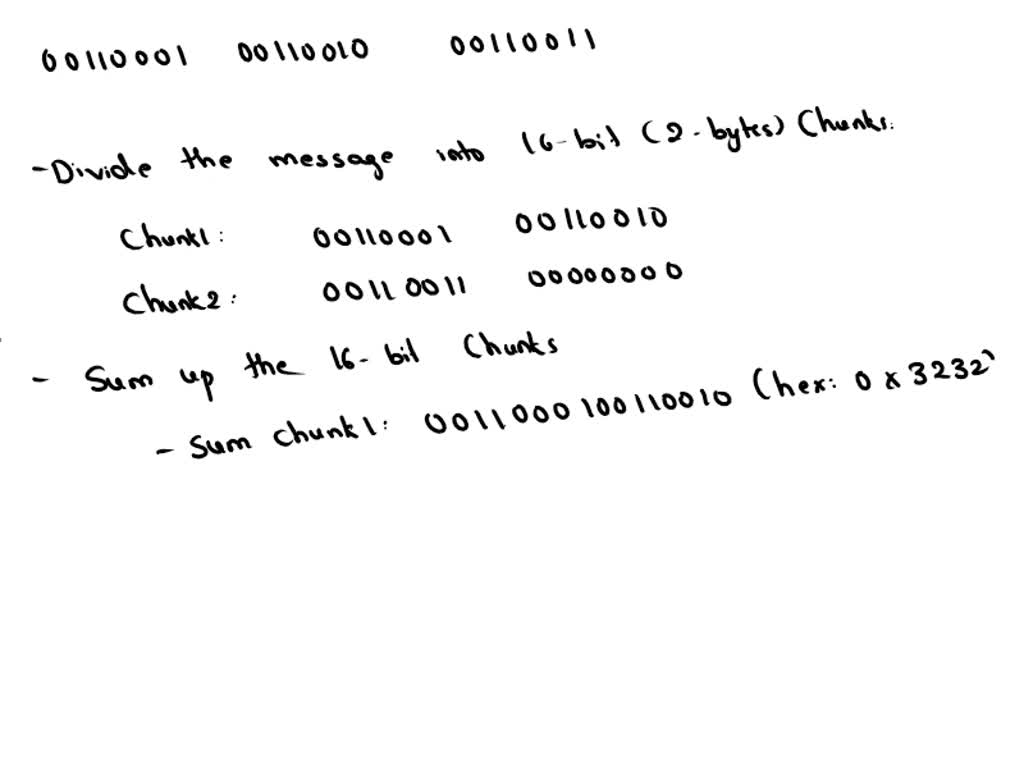 00110001 00110010 00110011
- Divide the message into 16-bit (2-bytes) Chunks.
Chunk1: 00110001 00110010
Chunk2: 00110011 00000000
- Sum up the 16-bit Chunks
- Sum chunk1: 0011000100110010 (hex: 0x3232)